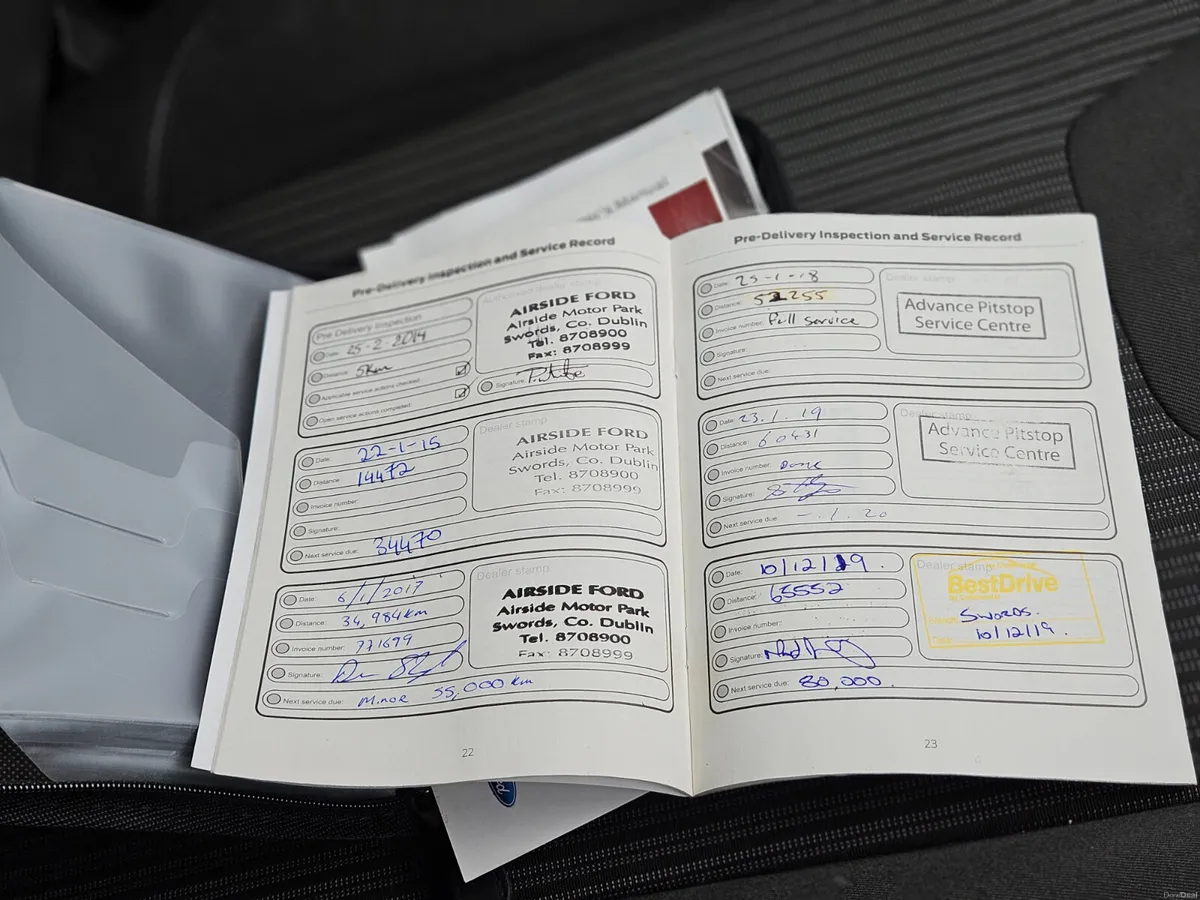 's Manual
Pre-Delivery Inspection and Service Record
Pre Delivery Inspection
Date: 25-2-2014
Distance: 5km
Applicable service actions checked
Open service actions completed
Authorised dealer stamp
AIRSIDE FORD
Airside Motor Park
Swords, Co. Dublin
Tel. 8708900
Fax: 8708999
Signature:
Date: 22-1-15
Distance: 14472
Invoice number:
Signature:
Next service due: 34470
Dealer stamp
AIRSIDE FORD
Airside Motor Park
Swords, Co. Dublin
Tel. 8708900
Fax: 8708999
Date: 6/1/2017
Distance: 34,984km
Invoice number: 771699
Signature:
Next service due: Minor 55,000 km
Dealer stamp
AIRSIDE FORD
Airside Motor Park
Swords, Co. Dublin
Tel. 8708900
Fax: 8708999
22
Pre-Delivery Inspection and Service Record
Date: 25-1-18
Distance: 52255
Invoice number: Full service
Signature:
Next service due:
Dealer stamp
Advance Pitstop
Service Centre
Date: 23.1.19
Distance: 60431
Invoice number: Done
Signature:
Next service due: -.1.20
Dealer stamp
Advance Pitstop
Service Centre
Date: 10/12/19.
Distance: 65552
Invoice number:
Signature:
Next service due: 80,000.
Dealer stamp
BestDrive
Swords.
10/12/19.
23
DoneDeal